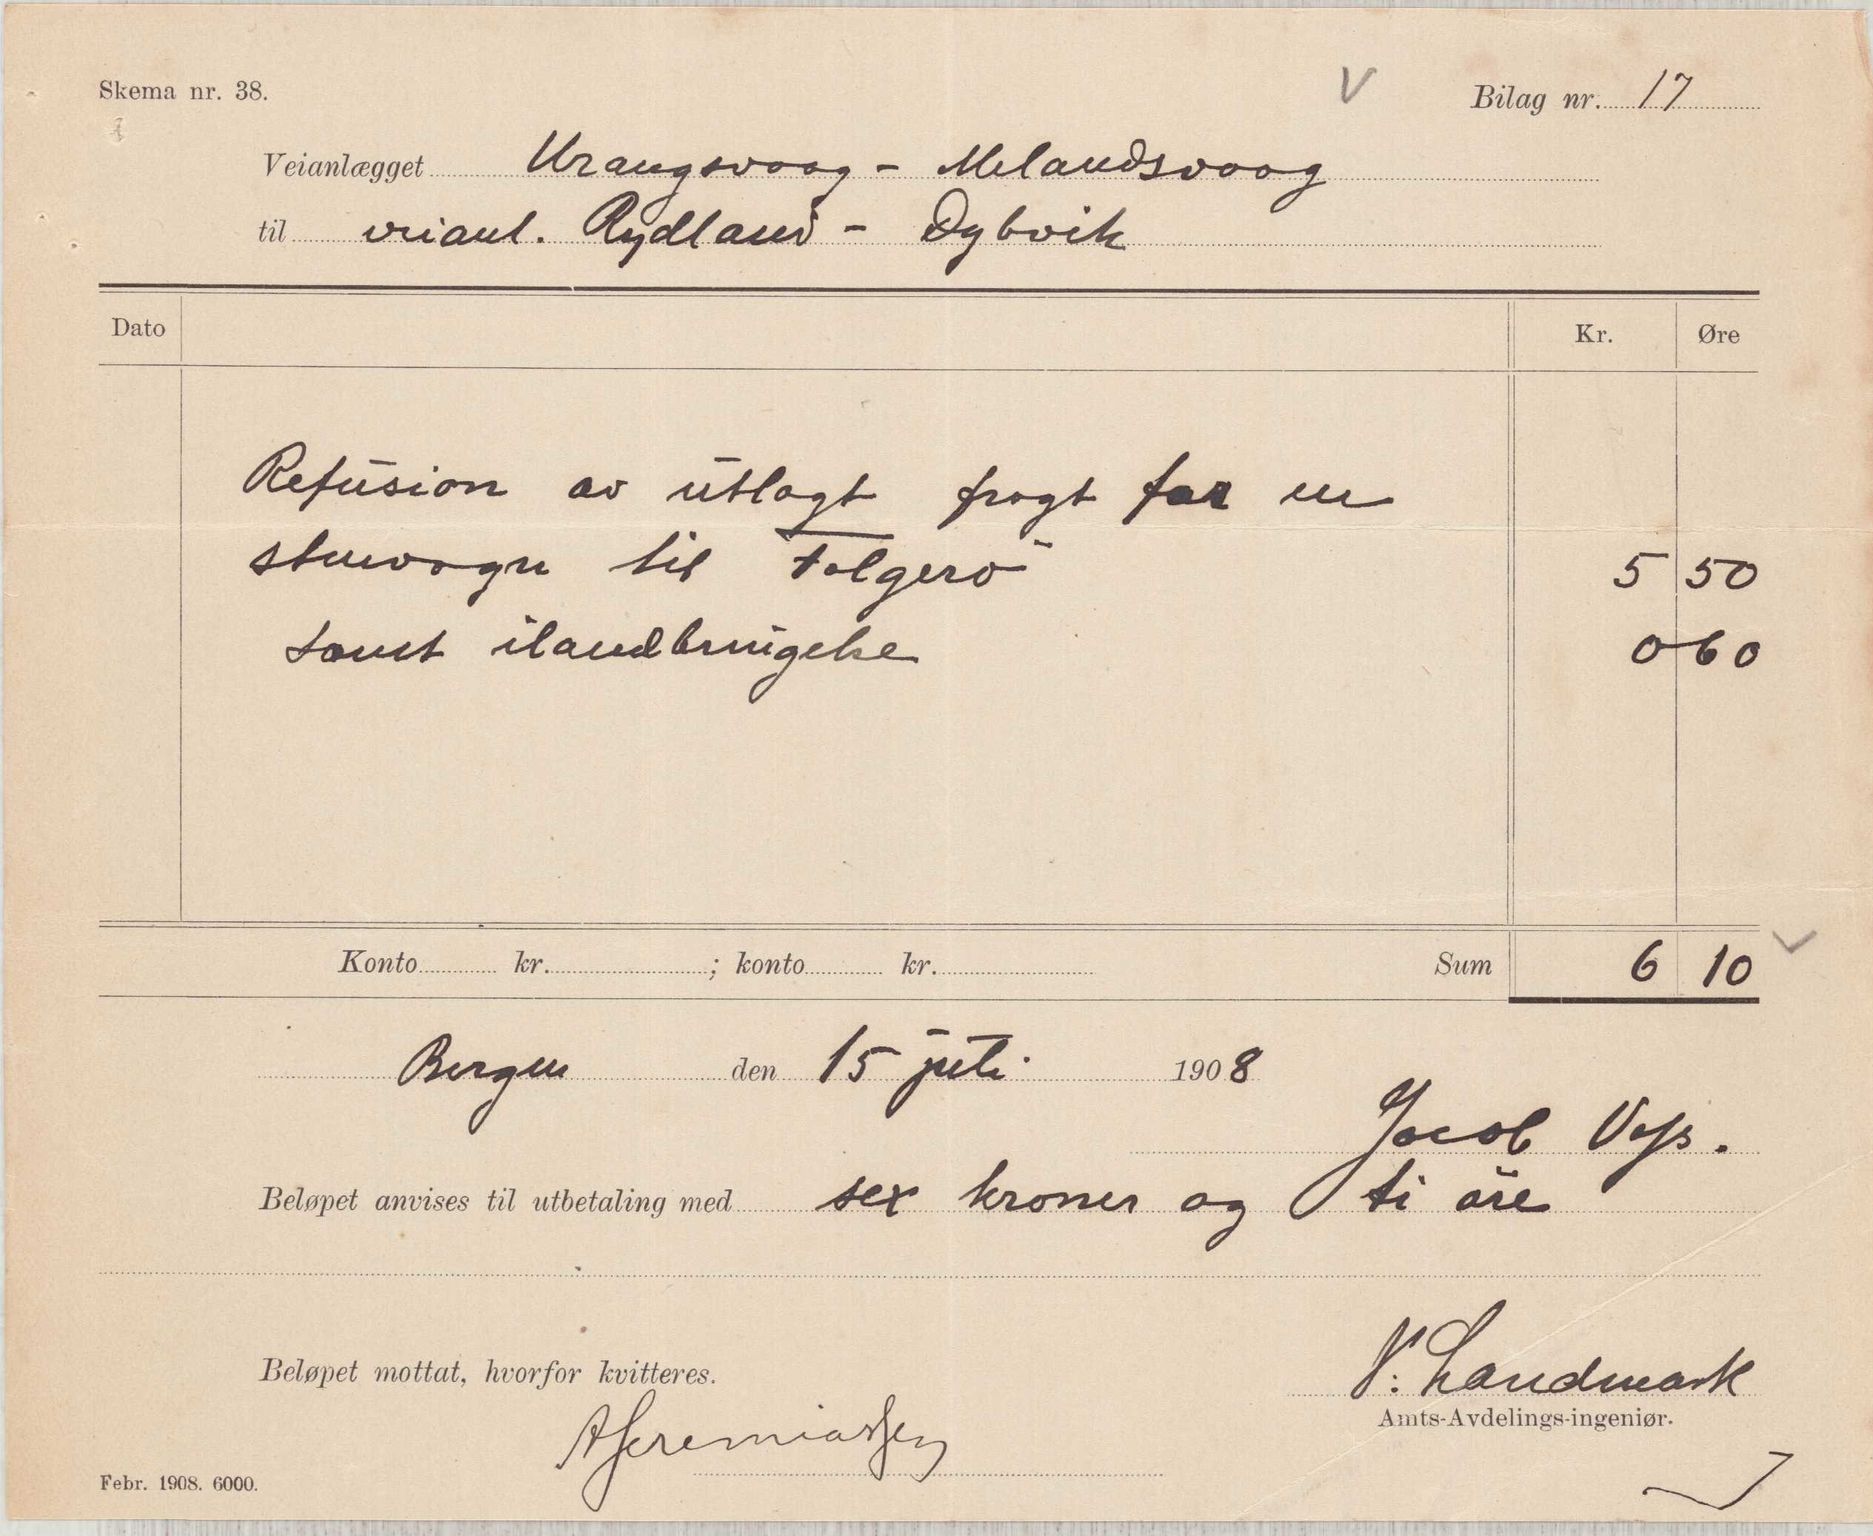 Skema nr. 38.
V
Bilag nr. 17
Veianlægget Urangsvaag - Melandsvaag
til veianl. Rydland - Dybvik
Dato Kr. Øre
Refusion av utlagt fragt for en
stenvogn til Folgerö 5 50
samt ilandbringelse 0 60
Konto kr. ; konto kr. Sum 6 10
Bergen den 15 juli 1908
Jacob Voss.
Beløpet anvises til utbetaling med sex kroner og ti öre
N. Landmark
Amts-Avdelings-ingeniør.
Beløpet mottat, hvorfor kvitteres.
A Jeremiassen
Febr. 1908. 6000.